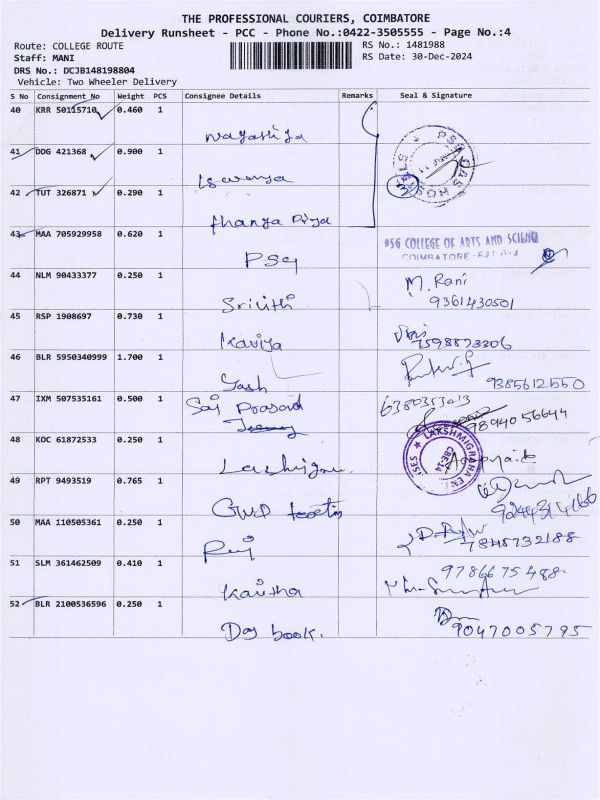 THE PROFESSIONAL COURIERS, COIMBATORE
Delivery Runsheet - PCC - Phone No.:0422-3505555 - Page No.:4
Route: COLLEGE ROUTE RS No.: 1481988
Staff: MANI RS Date: 30-Dec-2024
DRS No.: DCJB148198804
Vehicle: Two Wheeler Delivery
S No Consignment No Weight PCS Consignee Details Remarks Seal & Signature
40 KRR 50115710 0.460 1
41 DDG 421368 0.900 1
42 TUT 326871 0.290 1
thanga Priya
43 MAA 705929958 0.620 1
PSG
PSG COLLEGE OF ARTS AND SCIENCE
COIMBATORE
44 NLM 90433377 0.250 1
Srilith M. Rani
9361430501
45 RSP 1908697 0.730 1
Kaviya 7598873306
46 BLR 5950340999 1.700 1
Yash 9385612550
47 IXM 507535161 0.500 1
Sai Prasad 6380353413
9894056644
48 KOC 61872533 0.250 1
LAKSHMIGRAHA
CBE-14
49 RPT 9493519 0.765 1
GWD
50 MAA 110505361 0.250 1
7845732188
51 SLM 361462509 0.410 1
Kavitha 9786675488
52 BLR 2100536596 0.250 1
Dog book. 9047005795